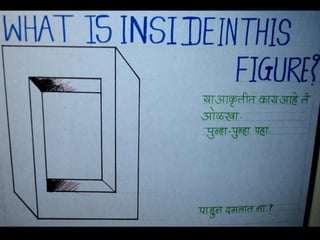 WHAT IS INSIDE IN THIS
FIGURE?
या आकृतीत काय आहे ते
ओळखा.
पुन्हा-पुन्हा पहा.
पाहुन दमलात ना?